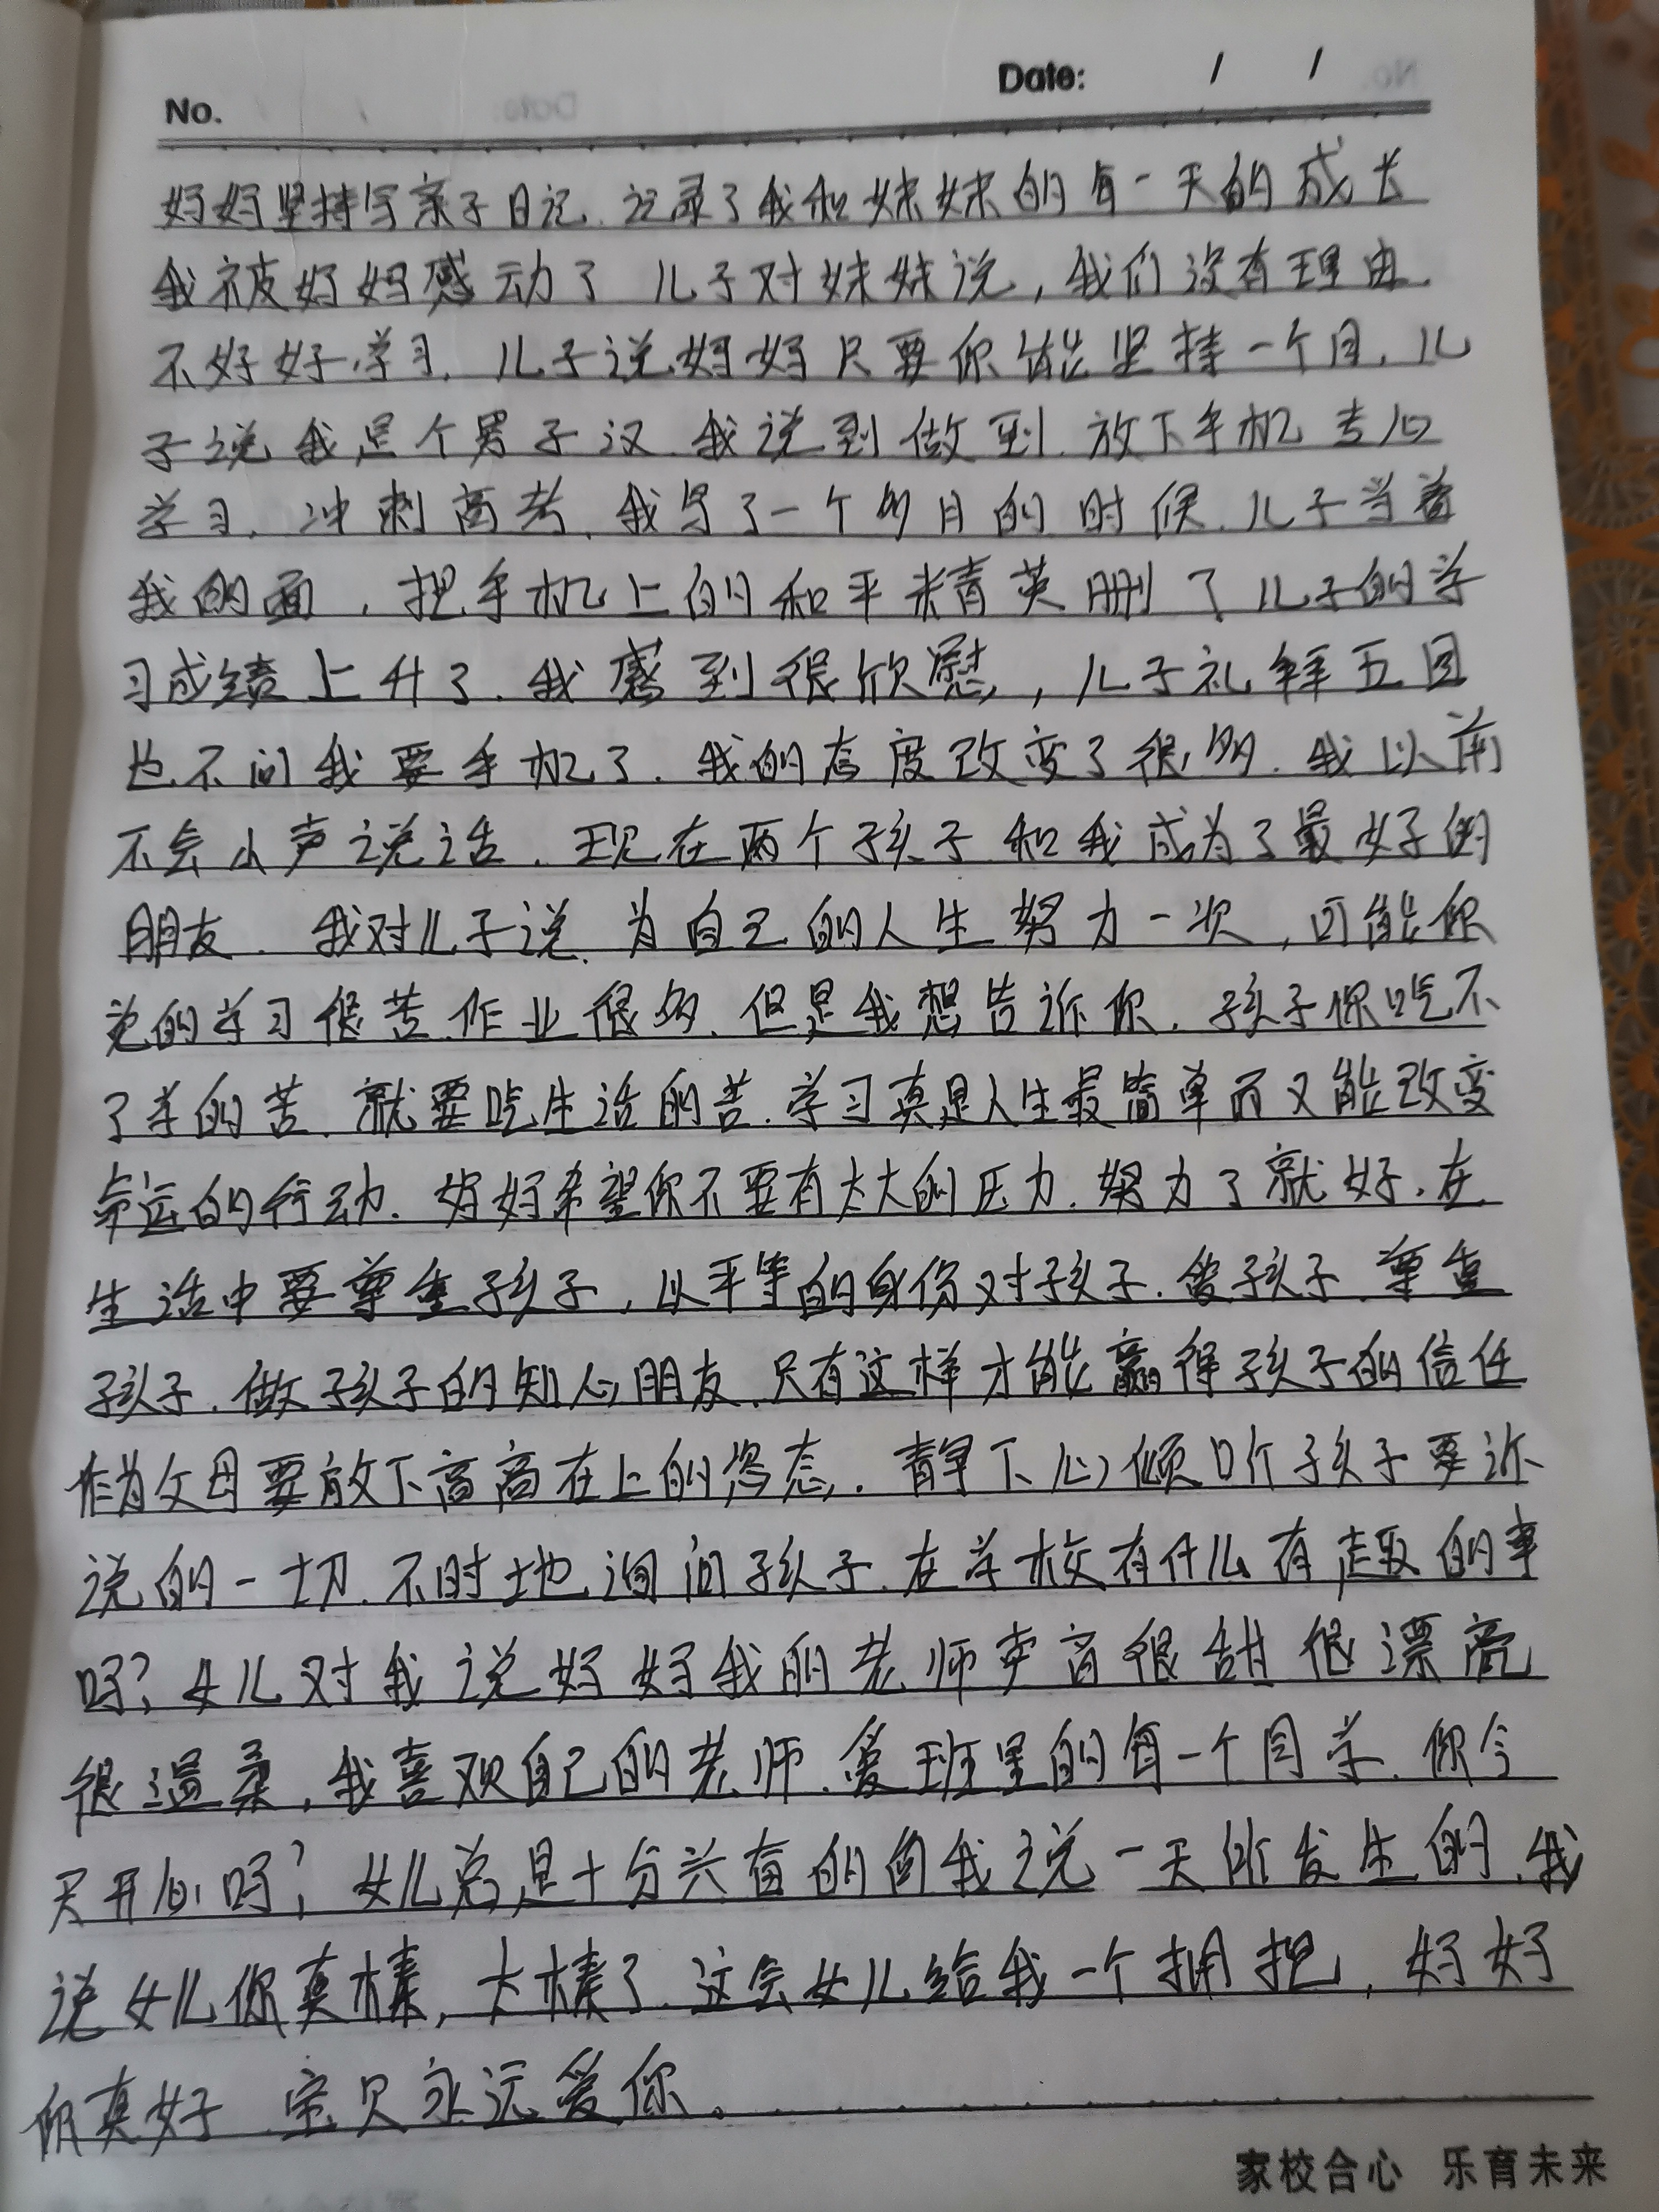 No.
Date: / /
妈妈坚持写亲子日记.记录了我和妹妹的每一天的成长
我被妈妈感动了 儿子对妹妹说,我们没有理由.
不好好学习.儿子说妈妈只要你能坚持一个月.儿
子说我是个男子汉.我说到做到.放下手机专心
学习.冲刺高考.我写了一个多月的时候.儿子当着
我的面,把手机上的和平精英删了儿子的学
习成绩上升了.我感到很欣慰,儿子礼拜五回
也不问我要手机了.我的态度改变了很多.我以前
不会小声说话.现在两个孩子和我成为了最好的
朋友.我对儿子说.为自己的人生努力一次,可能你
觉的学习很苦.作业很多.但是我想告诉你.孩子你吃不
了学的苦.就要吃生活的苦.学习真是人生最简单而又能改变
命运的行动.妈妈希望你不要有太大的压力.努力了就好.在
生活中要尊重孩子,以平等的身份对孩子.爱孩子.尊重
孩子.做孩子的知心朋友.只有这样才能赢得孩子的信任
作为父母要放下高高在上的姿态.静下心倾听孩子要诉
说的一切.不时地询问孩子.在学校有什么有趣的事
吗?女儿对我说妈妈我的老师声音很甜很漂亮
很温柔,我喜欢自己的老师.爱班里的每一个同学.你今
天开心吗?女儿总是十分兴奋的向我说一天所发生的.我
说女儿你真棒,太棒了.这会女儿给我一个拥抱,妈妈
你真好.宝贝永远爱你。
家校合心 乐育未来